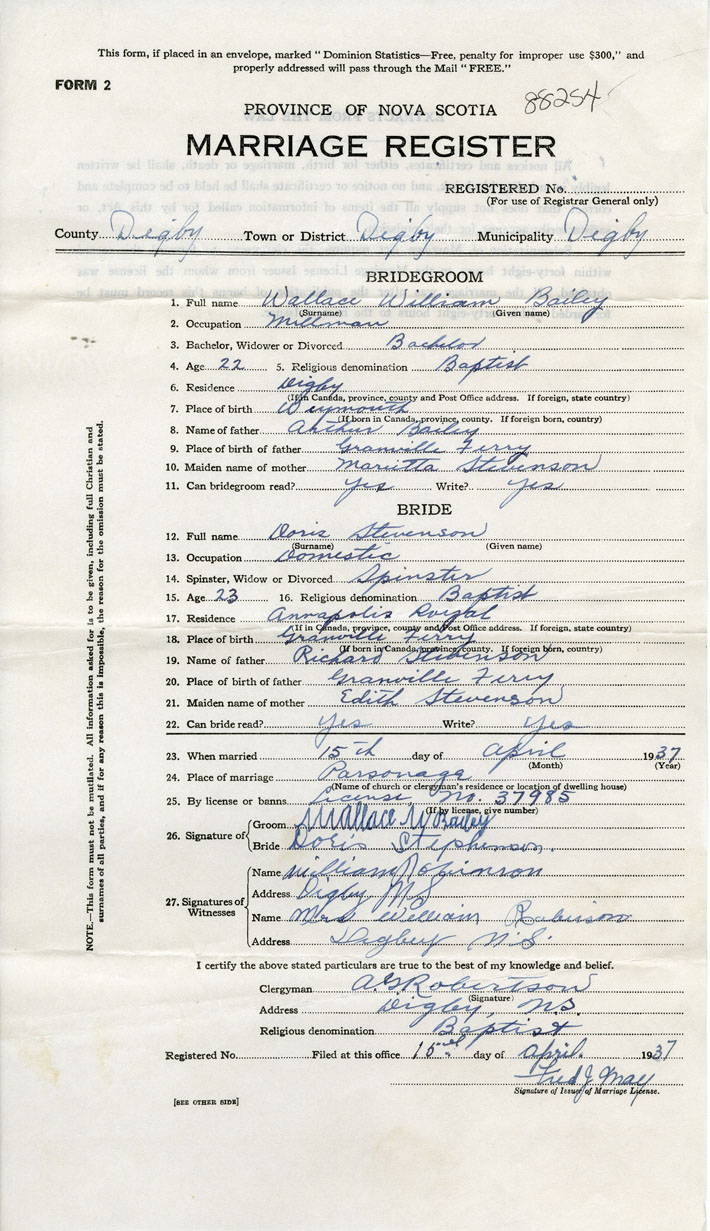 This form, if placed in an envelope, marked "Dominion Statistics—Free, penalty for improper use $300," and
properly addressed will pass through the Mail "FREE."
FORM 2
88254
PROVINCE OF NOVA SCOTIA
MARRIAGE REGISTER
REGISTERED No.
(For use of Registrar General only)
County Digby Town or District Digby Municipality Digby
BRIDEGROOM
1. Full name Wallace William Bailey
(Surname) (Given name)
2. Occupation Millman
3. Bachelor, Widower or Divorced Bachelor
4. Age 22 5. Religious denomination Baptist
6. Residence Digby
(If in Canada, province, county and Post Office address. If foreign, state country)
7. Place of birth Weymouth
(If born in Canada, province, county. If foreign born, country)
8. Name of father Arthur Bailey
9. Place of birth of father Granville Ferry
10. Maiden name of mother Marietta Stevenson
11. Can bridegroom read? Yes Write? Yes
BRIDE
12. Full name Doris Stevenson
(Surname) (Given name)
13. Occupation Domestic
14. Spinster, Widow or Divorced Spinster
15. Age 23 16. Religious denomination Baptist
17. Residence Annapolis Royal
(If in Canada, province, county and Post Office address. If foreign, state country)
18. Place of birth Granville Ferry
(If born in Canada, province, county. If foreign born, country)
19. Name of father Richard Stevenson
20. Place of birth of father Granville Ferry
21. Maiden name of mother Edith Stevenson
22. Can bride read? Yes Write? Yes
23. When married 15th day of April 1937
(Month) (Year)
24. Place of marriage Parsonage
(Name of church or clergyman's residence or location of dwelling house)
25. By license or banns License No. 37985
(If by license, give number)
26. Signature of Groom Wallace W Bailey
Bride Doris Stephenson.
27. Signatures of Witnesses Name William Robinson
Address Digby N S
Name Mrs William Robinson
Address Digby N.S.
I certify the above stated particulars are true to the best of my knowledge and belief.
Clergyman A G Robertson
(Signature)
Address Digby, N.S.
Religious denomination Baptist
Registered No. Filed at this office 15 day of April. 1937
Fred J. May
Signature of Issuer of Marriage License.
[SEE OTHER SIDE]
NOTE.—This form must not be mutilated. All information asked for is to be given, including full Christian and
surnames of all parties, and if for any reason this is impossible, the reason for the omission must be stated.